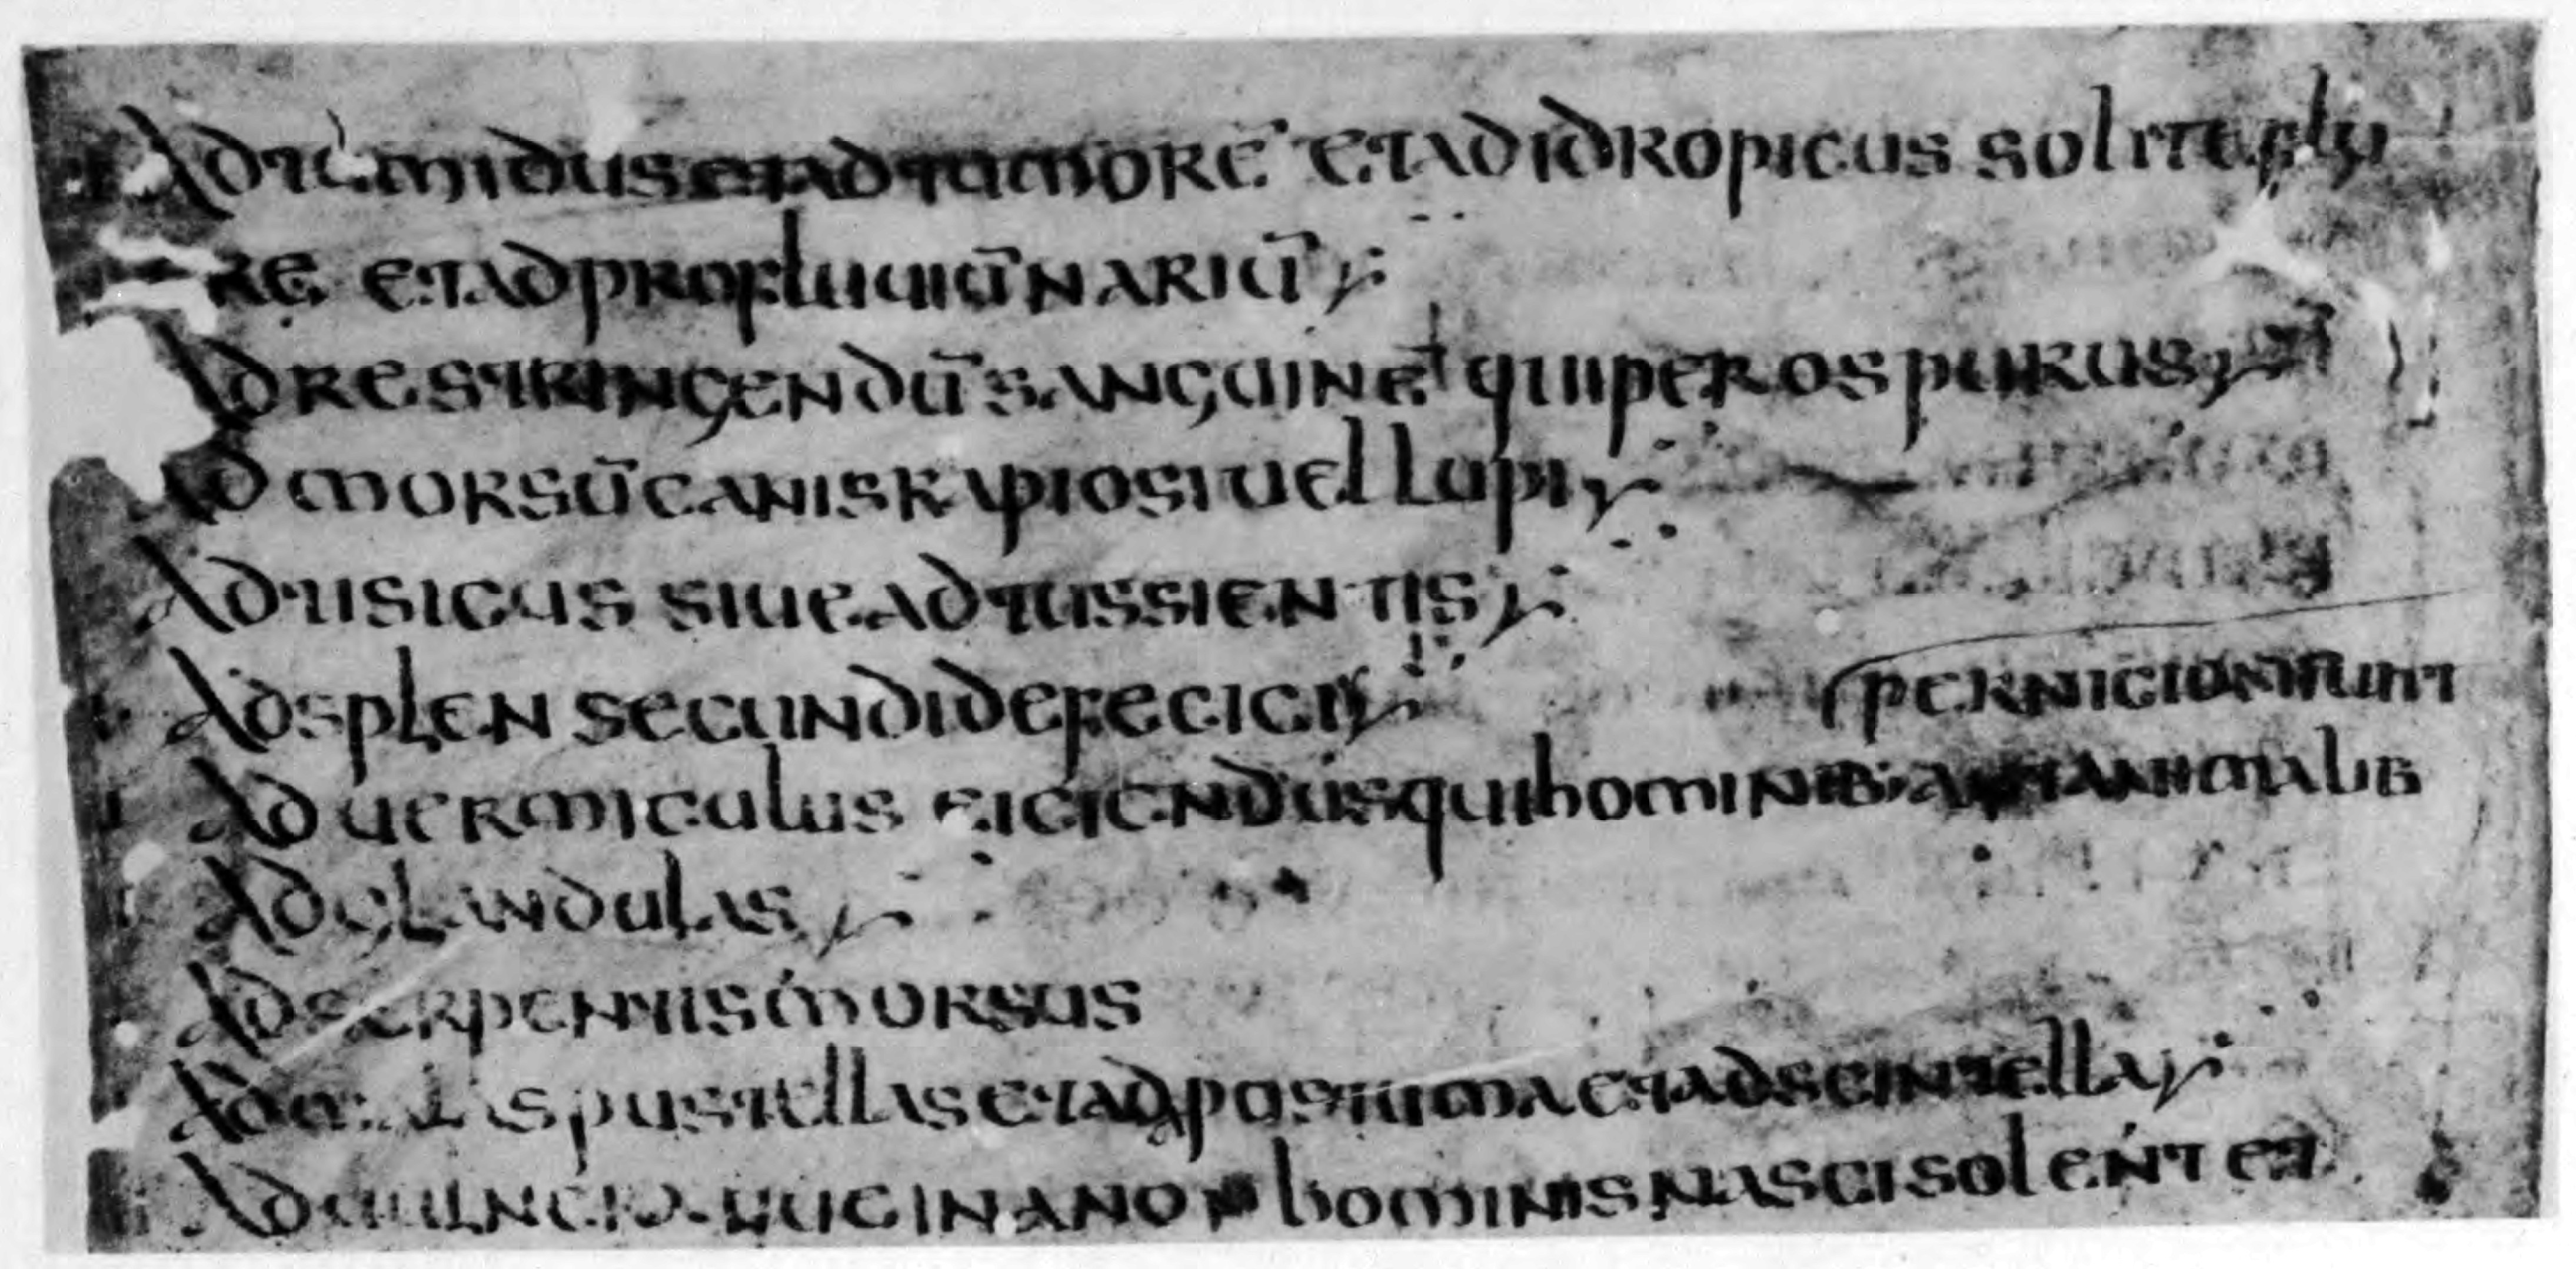 Ad tumidus et ad tumorē et ad idropicus solite flu
re et ad profluuiū nariū
Ad restringendū sanguinē qui per os purus
Ad morsū canis rapiosi uel lupi
Ad tisicus siue ad tussientis
Ad splen secundi defecici
pernicionurunt
Ad uermiculus eiciendus qui hominib; aut animalib
Ad glandulas
Ad serpentis morsus
Ad pustellas et ad postuma et ad scintella
Ad in ano hominis nasci solent et